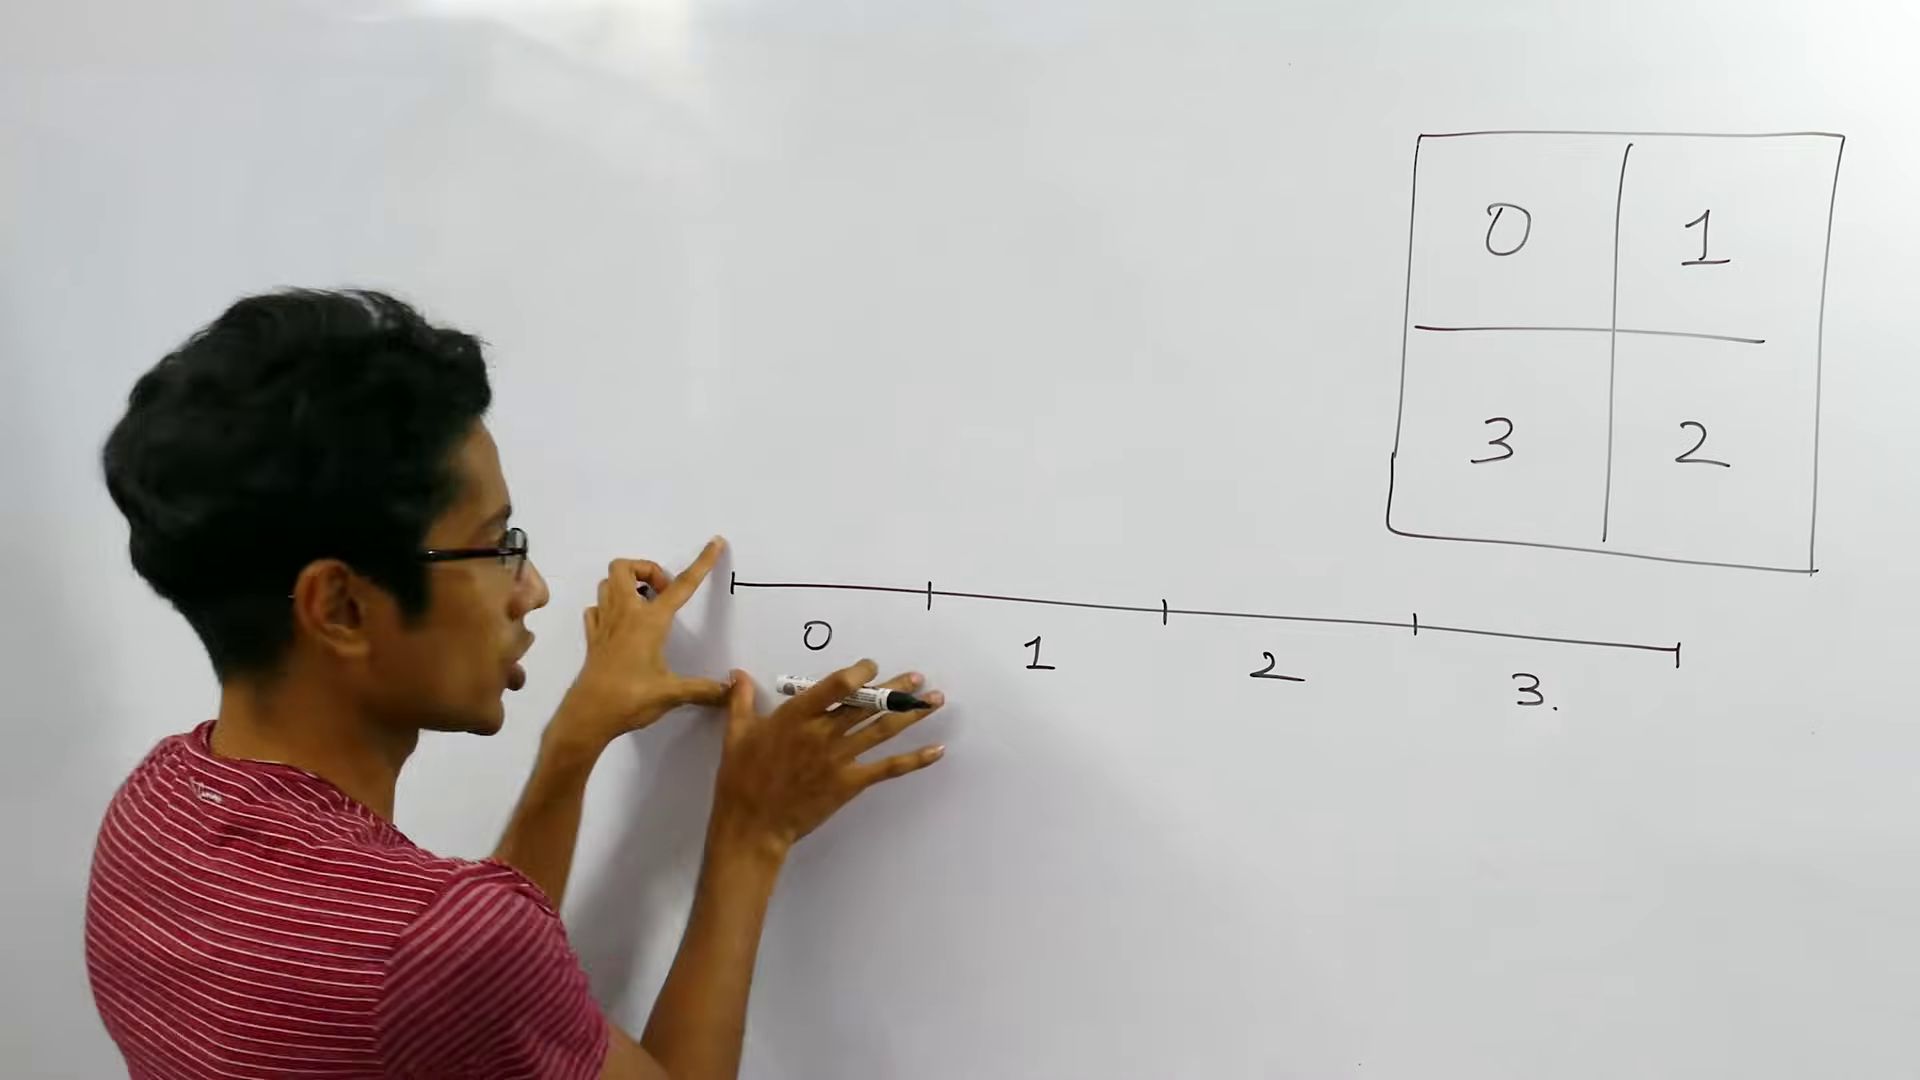 0 1
3 2
0 1 2 3.